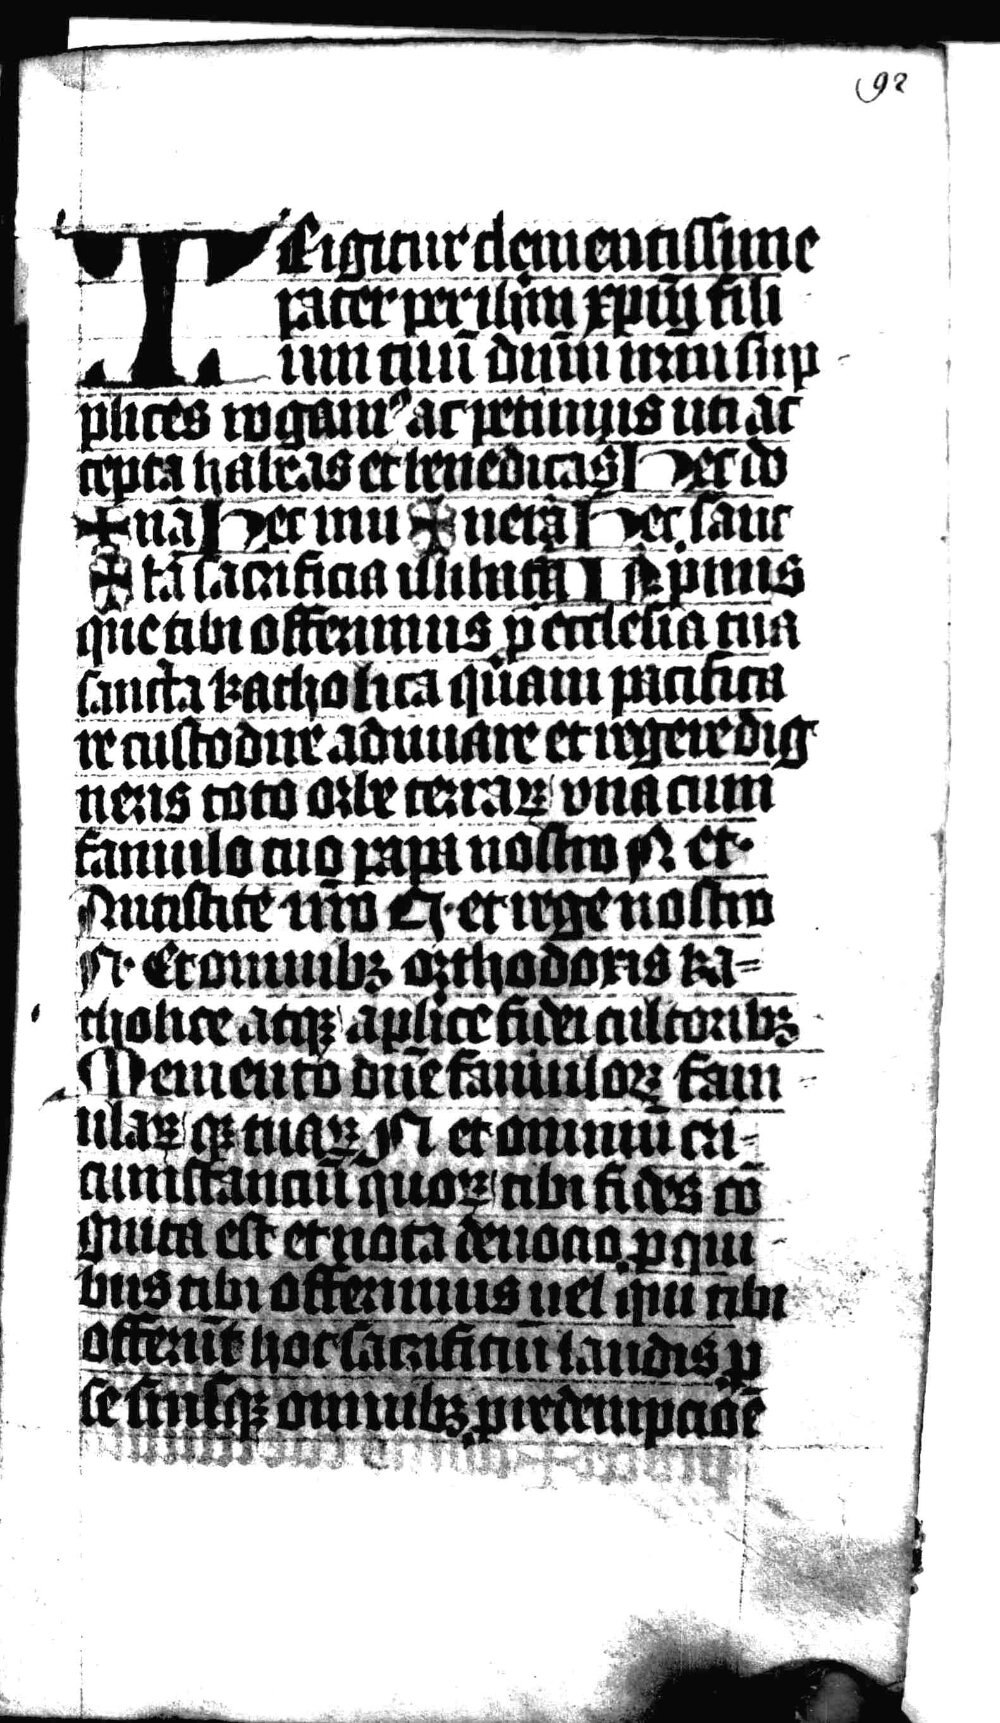 92
TE igitur clementissime
pater per ihm xpm fili
um tuū dnm nrm sup
plices rogam⁹ ac petimus uti ac
cepta habeas et benedicas Hec do
✠ na Hec mu ✠ nera Hec sanc
✠ ta sacrificia illibata In pimis
que tibi offerimus p ecclesia tua
sancta katholica quam pacifica
re custodire aduuare et regere dig
neris toto orbe terraꝝ vna cum
famulo tuo papa nostro N et
Antistite nro N· et rege nostro
N· Et omnibꝫ orthodoxis ka=
tholice atqꝫ aplice fidei cultoribꝫ
Memento dne famuloꝝ fam
ulaꝝ qꝫ tuaꝝ N et omniū cir-
cumstanciū quoꝝ tibi fides co
gnita est et nota deuocio p qui
bus tibi offerimus uel qui tibi
offerūt hoc sacrificiū laudis p
se suisqꝫ omnibꝫ p redempcioē